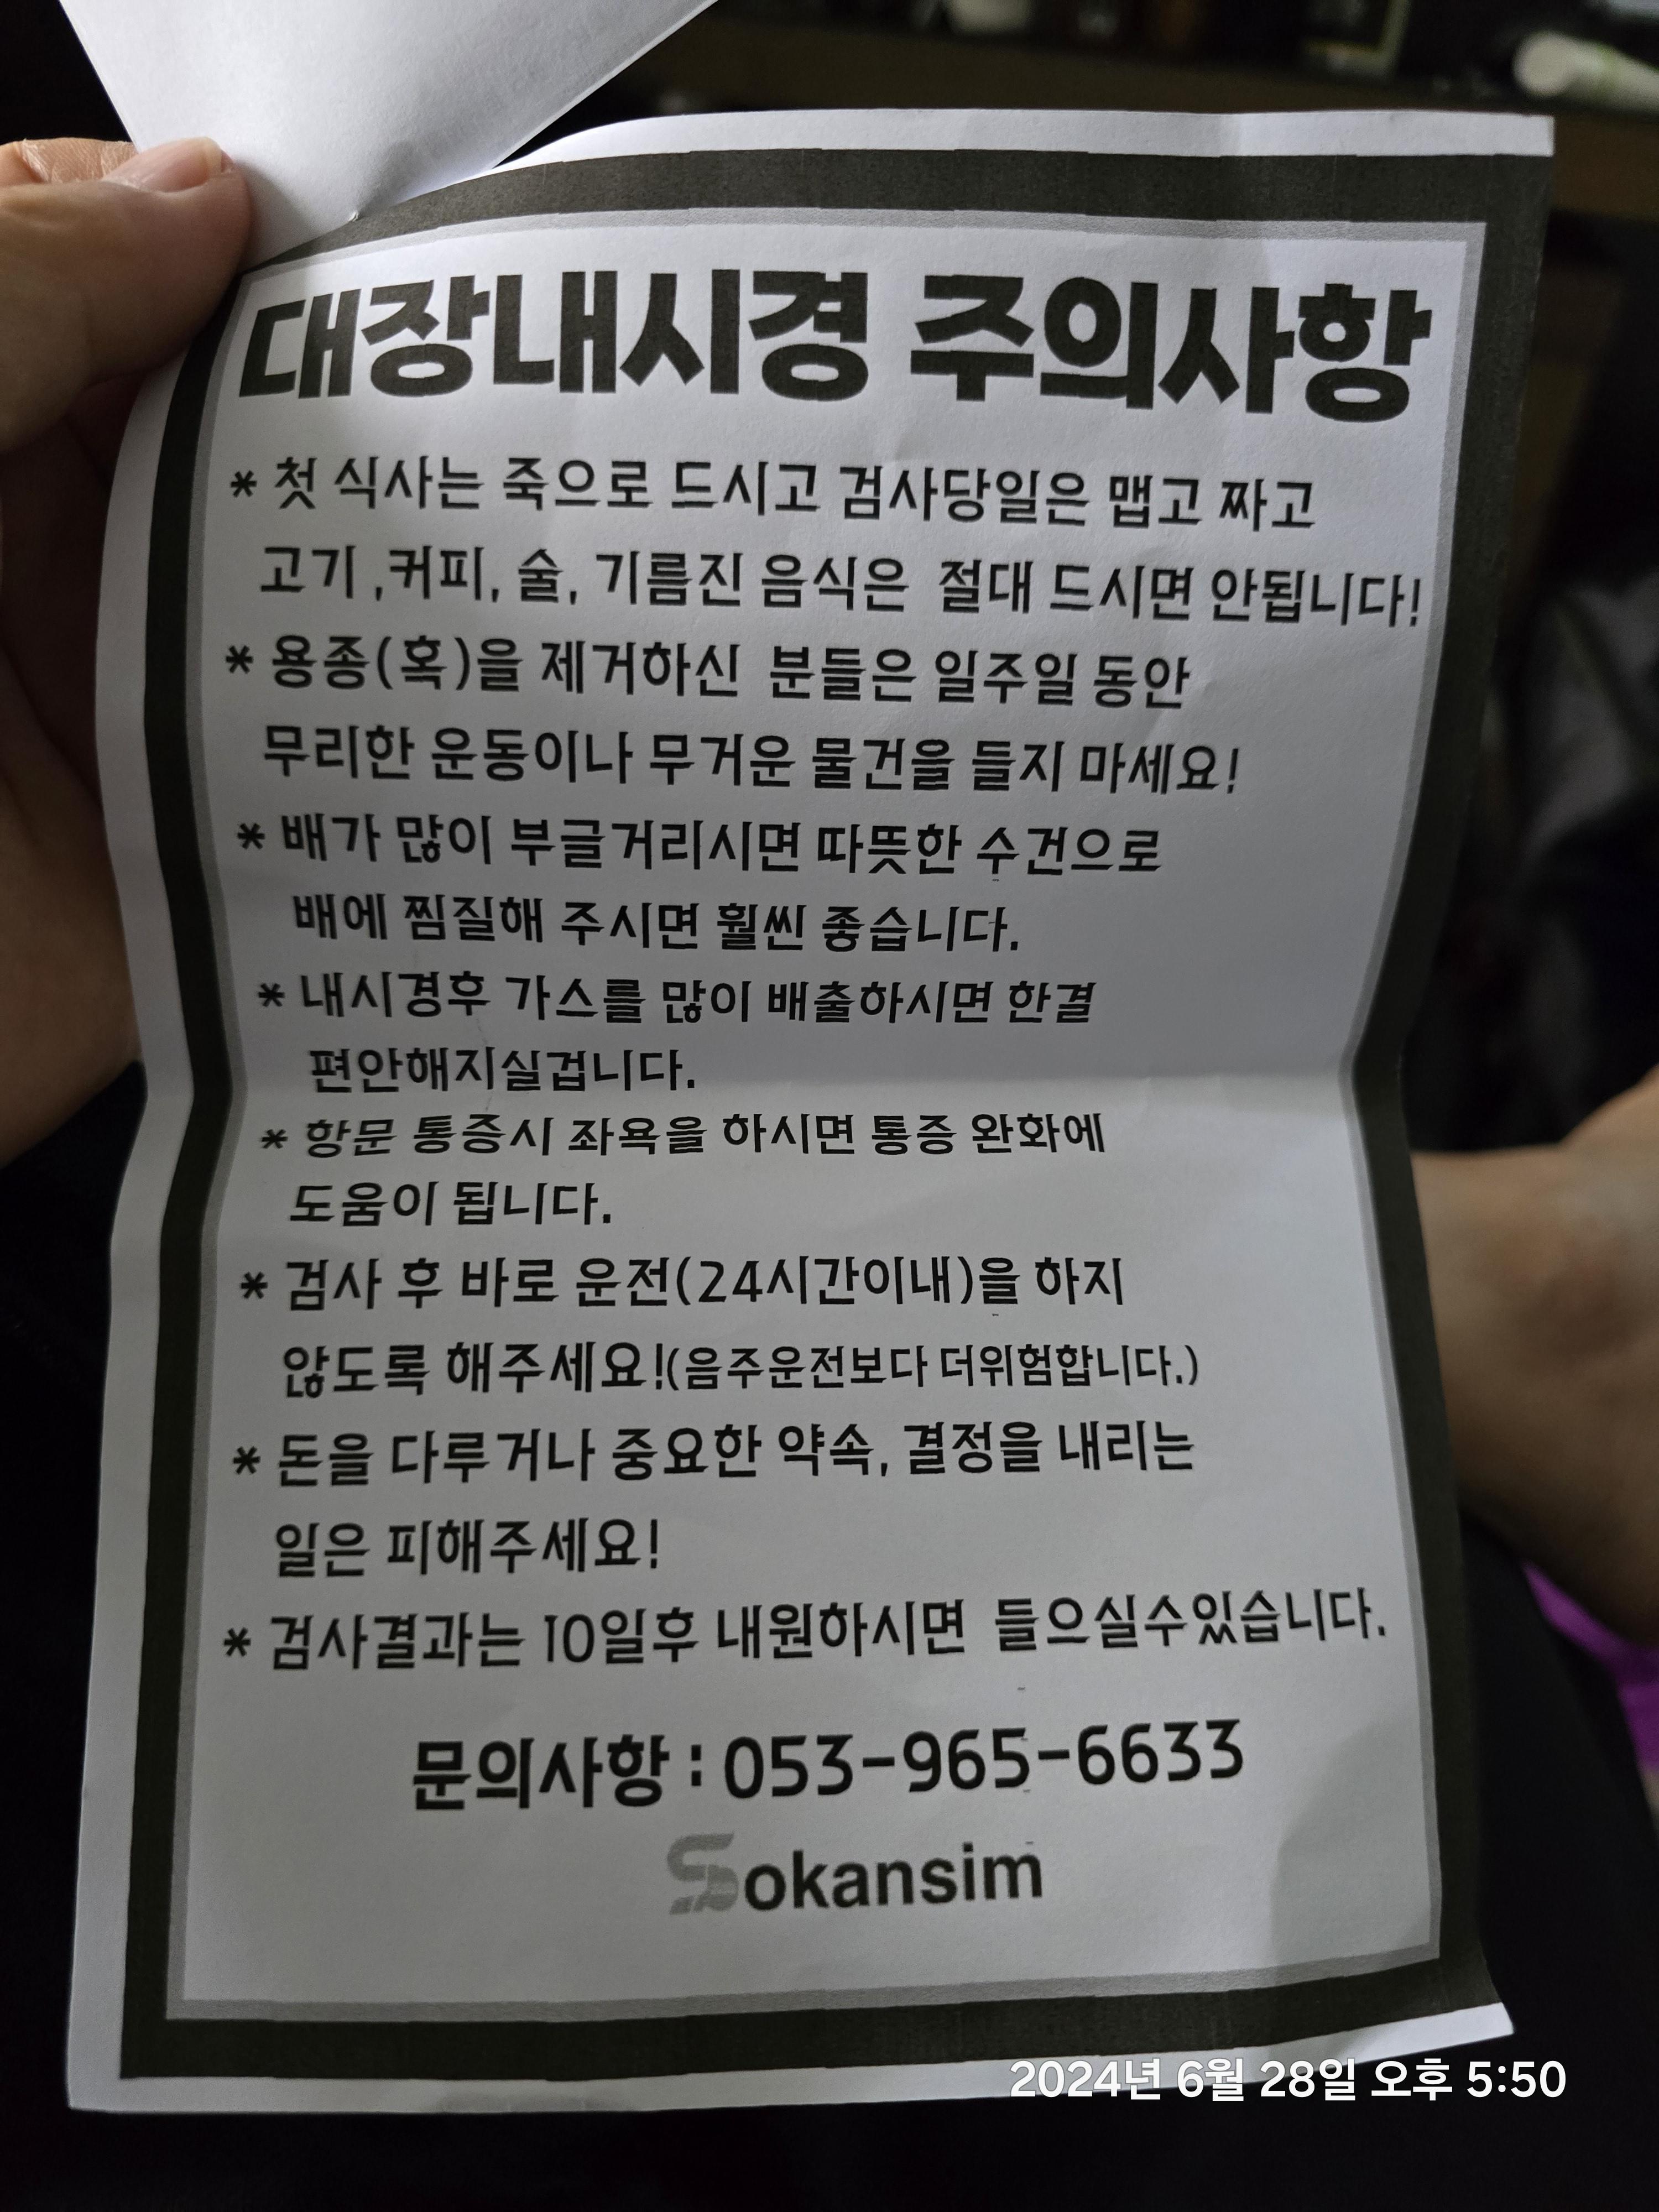 대장내시경 주의사항
* 첫 식사는 죽으로 드시고 검사당일은 맵고 짜고
고기 ,커피, 술, 기름진 음식은 절대 드시면 안됩니다!
* 용종(혹)을 제거하신 분들은 일주일 동안
무리한 운동이나 무거운 물건을 들지 마세요!
* 배가 많이 부글거리시면 따뜻한 수건으로
배에 찜질해 주시면 훨씬 좋습니다.
* 내시경후 가스를 많이 배출하시면 한결
편안해지실겁니다.
* 항문 통증시 좌욕을 하시면 통증 완화에
도움이 됩니다.
* 검사 후 바로 운전(24시간이내)을 하지
않도록 해주세요!(음주운전보다 더위험합니다.)
* 돈을 다루거나 중요한 약속, 결정을 내리는
일은 피해주세요!
* 검사결과는 10일후 내원하시면 들으실수있습니다.
문의사항 : 053-965-6633
Sokansim
2024년 6월 28일 오후 5:50